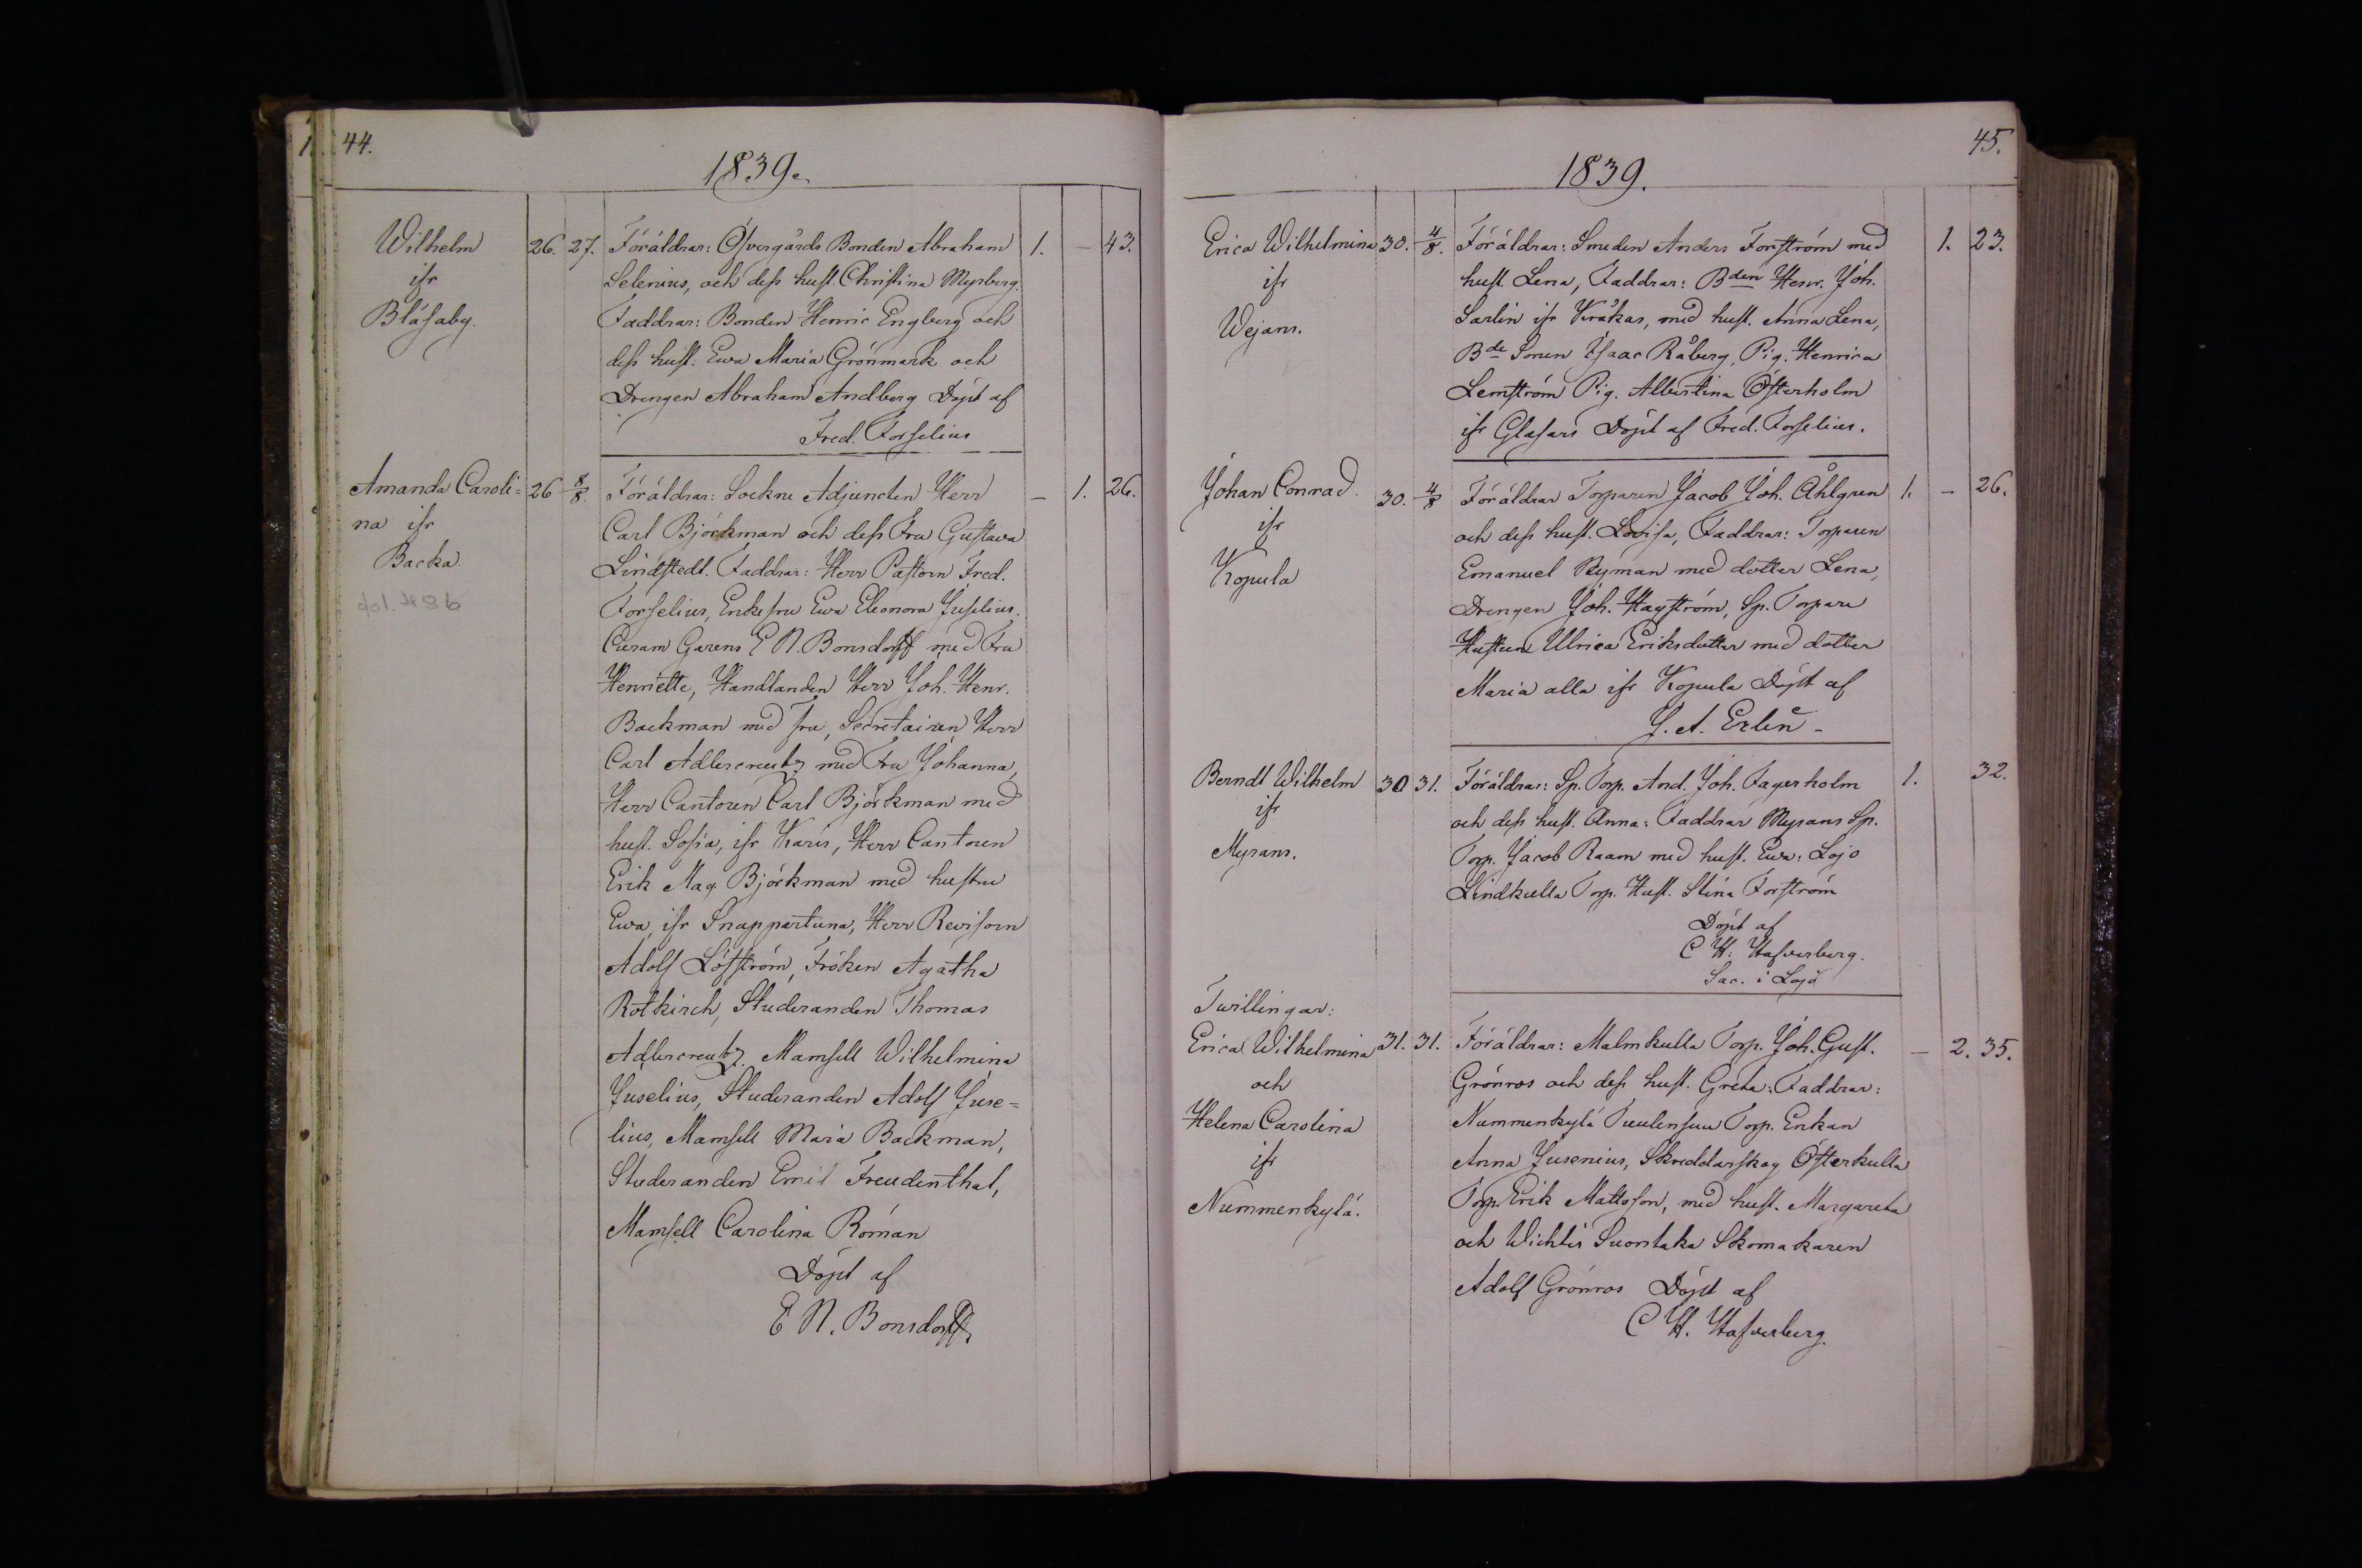 44.
1839.
Wilhelm 26. 27. Föräldrar: Öfvergårds Bonden Abraham 1. – 43.
ifr Selenius, och dess hust. Christina Myrberg.
Blåsaby. Faddrar: Bonden Henric Engberg och
dess hust. Ewa Maria Grönmark och
Drengen Abraham Andberg Döpt af
Fred. Forselius
Amanda Caroli= 26 8/8. Föräldrar: Sockne Adjuncten Herr – 1. 26.
na ifr Carl Björkman och dess Fru Gustava
Backa. Lindstedt. Faddrar: Herr Pastorn Fred.
fol. 486 Forselius, Enkefru Ewa Eleonora Juselius.
Curam Gerens E N. Bonsdorff med Fru
Henriette, Handlanden Herr Joh. Henr.
Backman med fru, Secretairen Herr
Carl Adlercreutz med Fru Johanna,
Herr Cantoren Carl Björkman med
hust. Sofia, ifr Karis, Herr Cantoren
Erik Mag. Björkman med hustru
Ewa, ifr Snappertuna, Herr Revisorn
Adolf Löfström, Fröken Agatha
Rotkirch, Studeranden Thomas
Adlercreutz, Mamsell Wilhelmina
Juselius, Studeranden Adolf Juse=
lius, Mamsell Maria Backman,
Studeranden Emil Freudenthal,
Mamsell Carolina Roman
Döpt af
E N. Bonsdorff.
45.
1839.
Erica Wilhelmina 30. 4/8. Föräldrar: Smeden Anders Forsström med 1. 23.
ifr hust. Lena, Faddrar: Bden Henr. Joh.
Wejans. Sarlin ifr Kråkas, med hust. Anna Lena,
Bde Sonen Isaac Råberg, Pig. Henrica
Lemström Pig. Albertina Österholm
ifr Glasars Döpt af Fred. Forselius.
Johan Conrad. 30. 4/8 Föräldrar Torparen Jacob Joh. Åhlgren 1. – 26.
ifr och dess hust. Lovisa, Faddrar: Torparen
Kopula Emanuel Nyman med dotter Lena,
Drengen Joh. Hagström, Sp. Torpare
Hustrun Ulrica Eriksdotter med dotter
Maria alla ifr Kopula Döpt af
J. A. Erlin
Berndt Wilhelm 30 31. Föräldrar: Sp. Torp. And. Joh. Fagerholm 1. 32.
ifr och dess hust. Anna: Faddrar Myrans Sp.
Myrans. Torp. Jacob Raam med hust. Ewa: Lojo
Lindkulla Torp. Hust. Stina Forström
Döpt af
C H. Hafverberg.
Sac. i Lojo
Twillingar:
Erica Wilhelmina 31. 31. Föräldrar: Malmkulla Torp. Joh. Gust. – 2. 35.
och Grönros och dess hust. Greta: Faddrar:
Helena Carolina Nummenkylä Tuulensuu Torp. Enkan
ifr Anna Jusenius, Skreddarskog Österkulla
Nummenkylä. Torp. Erik Mattsson, med hust. Margareta
och Wichtis Suontaka Skomakaren
Adolf Grönros Döpt af
C H. Hafverberg.